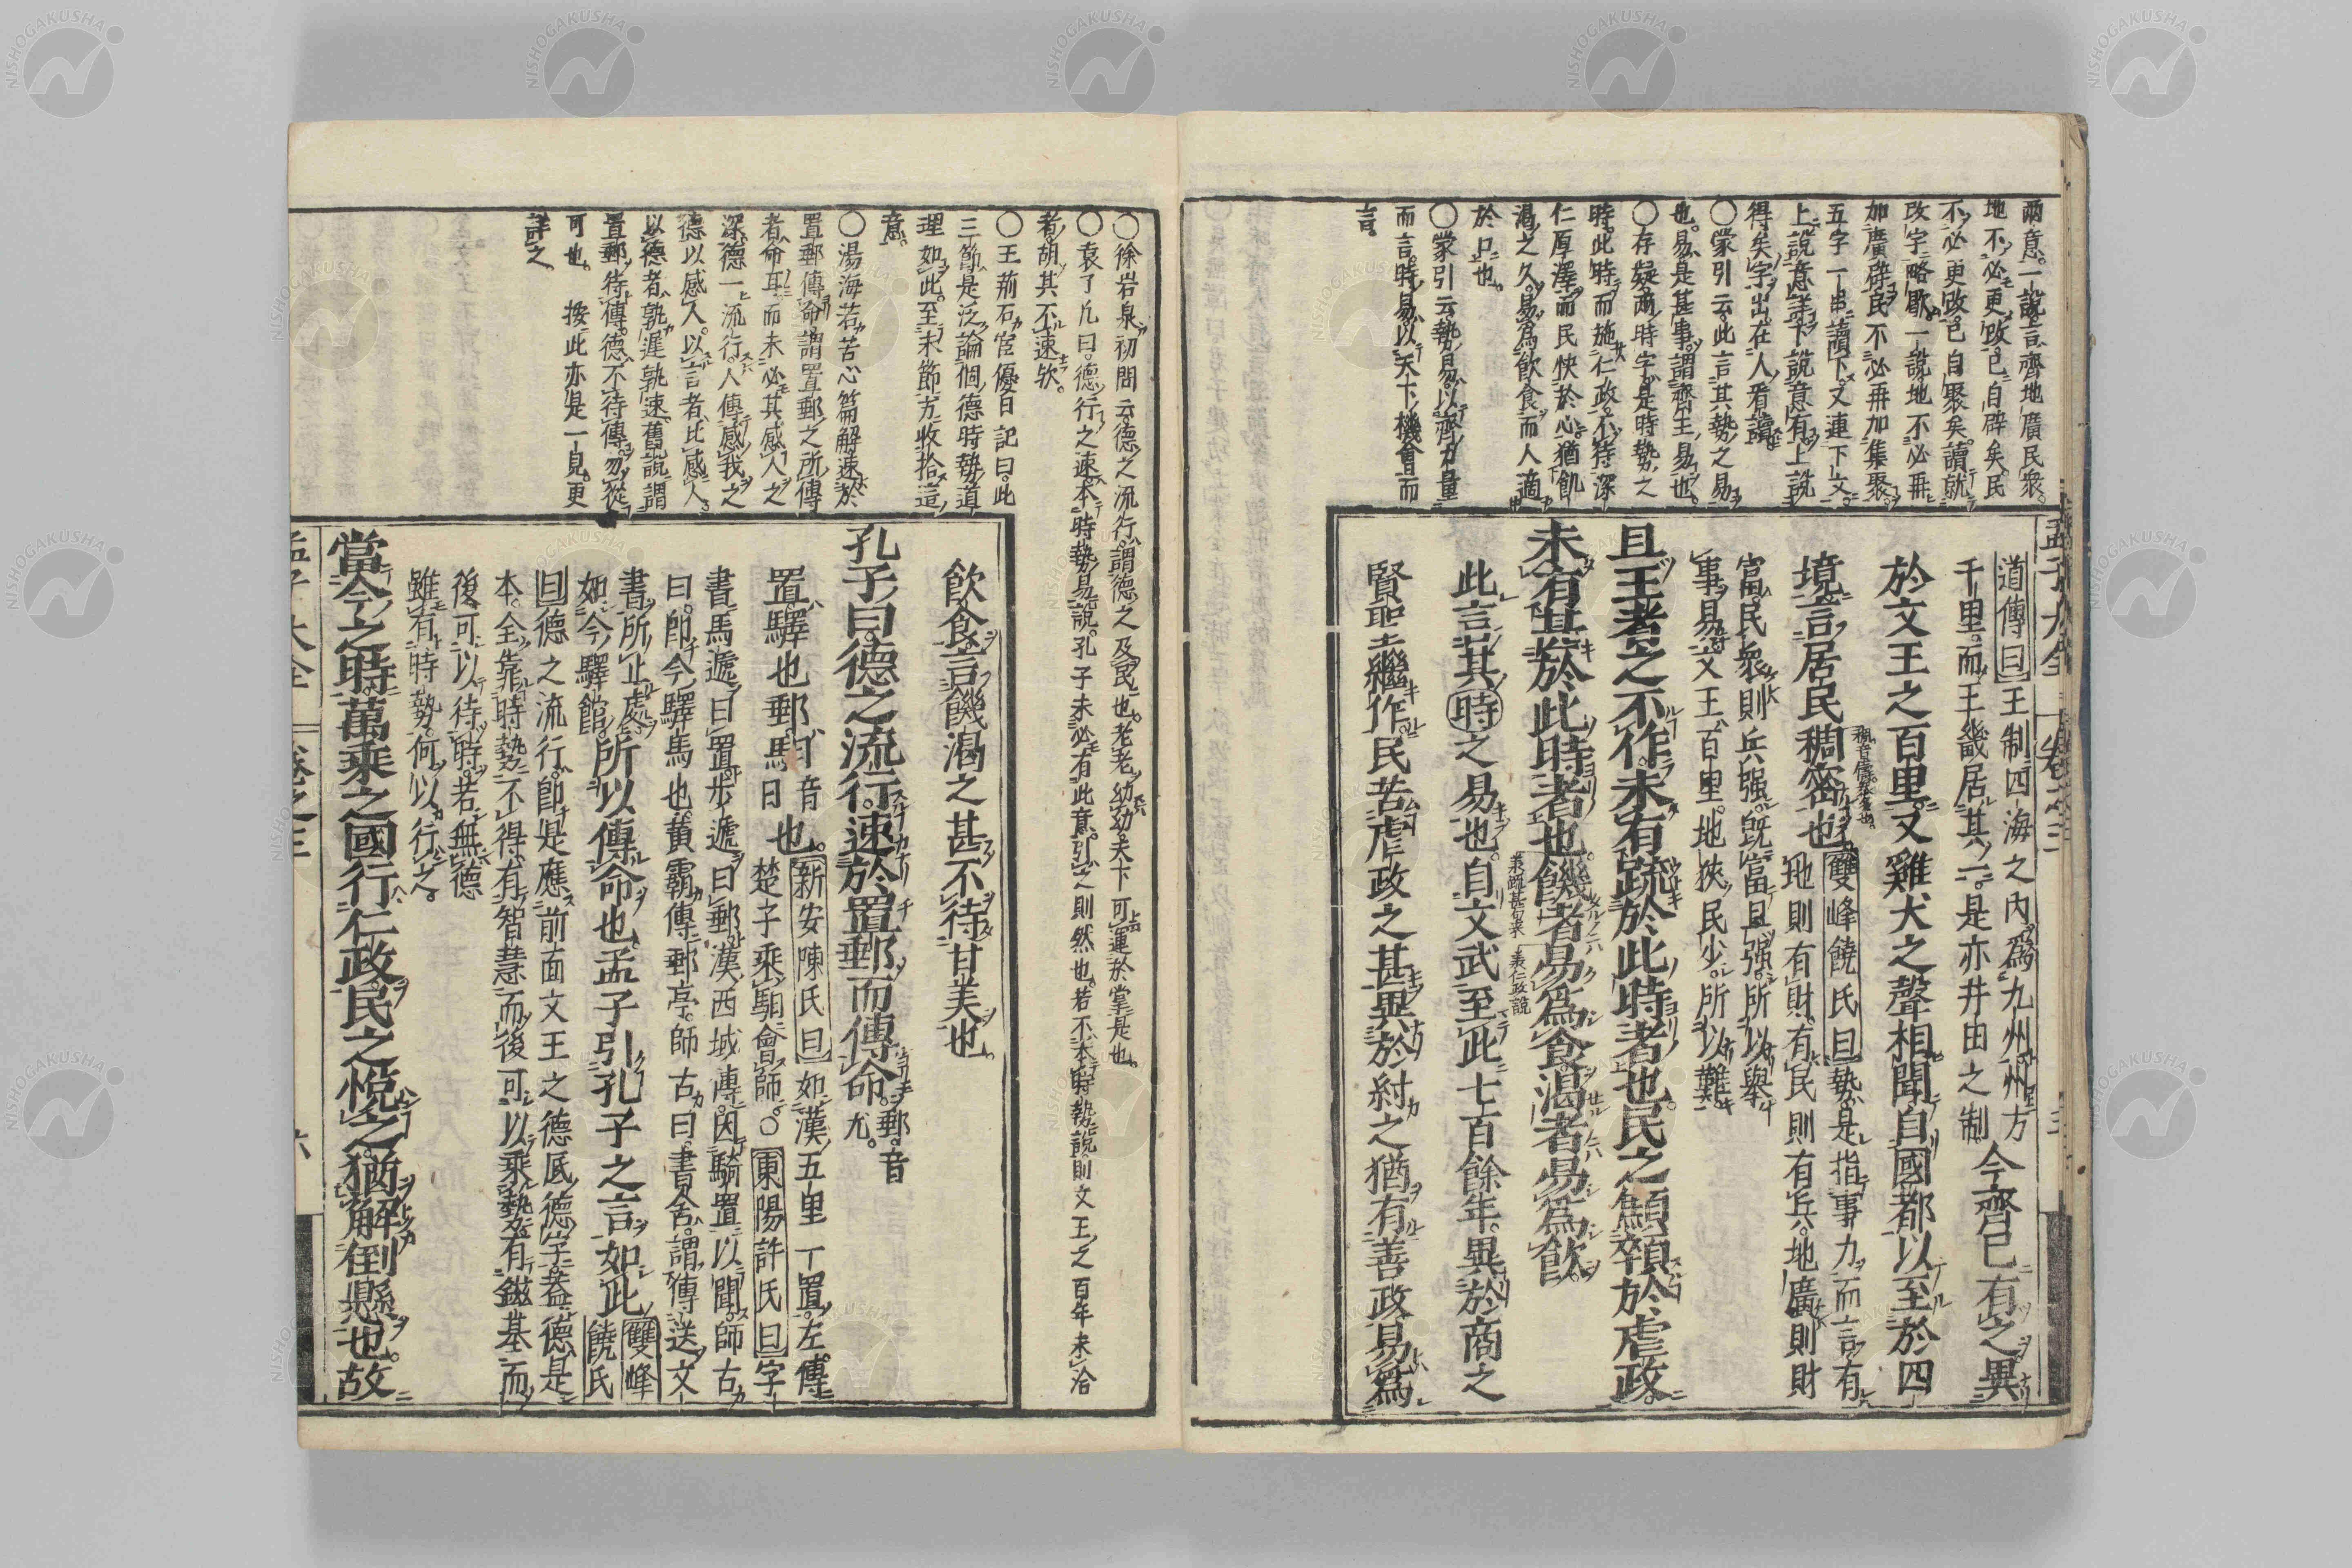 兩意一說言齊地廣民衆
地不必更改已自辟矣民
不必更改已自聚矣讀就
改字略歇一說地不必再
加廣辟民不必再加集聚
五字一串讀下又連下文
上說意差下說意有上說
得矣字出在人看讀
○蒙引云此言其勢之易
也易是甚事謂齊王易也
○存疑兩時字是時勢之
時此時而施仁政不待深
仁厚澤而民快於心猶飢
渴之久易爲飲食而人適
於口也
○蒙引云勢易以齊力量
而言時易以天下機會而
言
孟子大全 卷之三
道傳曰王制四海之內爲九州州方
千里而王畿居其一是亦井田之制
今齊已有之異
於文王之百里又雞犬之聲相聞自國都以至於四
境言居民稠密也
雙峰饒氏曰勢是指事力而言有
地則有財有民則有兵地廣則財
富民衆則兵强旣富且强所以擧
事易文王百里地狹民少所以難
且王者之不作未有疏於此時者也民之顦顇於虐政
未有甚於此時者也饑者易爲食渴者易爲飲
此言其時之易也自文武至此七百餘年異於商之
賢聖繼作民苦虐政之甚異於紂之猶有善政易爲
○徐岩泉初問云德之流行謂德之及民也老老幼幼天下可運於掌是也
○袁了凡曰德行之速本時勢易說孔子未必有此意引之則然也若不本時勢說則文王之百年未洽
者胡其不速欤
○王荊石宦優日記曰此
三節是泛論個德時勢道
理如此至末節方收拾這
意
○湯海若苦心篇解速於
置郵傳命謂置郵之所傳
者命耳而未必其感人之
深德一流行人傳感我之
德以感人以言者比感人
以德者孰遲孰速舊說謂
置郵待傳德不待傳勿從
可也 按此亦是一見更
詳之
飲食言饑渴之甚不待甘美也
孔子曰德之流行速於置郵而傳命
郵音
尤
置驛也郵馹也
馹音
日
新安陳氏曰如漢五里一置左傳
楚子乘馹會師○東陽許氏曰字
書馬遞曰置步遞曰郵漢西域傳因騎置以聞師古
曰卽今驛馬也黃霸傳郵亭師古曰書舍謂傳送文
書所止處
如今驛館
所以傳命也孟子引孔子之言如此
雙峰
饒氏
曰德之流行卽是應前面文王之德底德字蓋德是
本全靠時勢不得有智慧而後可以乘勢有鎡基而
後可以待時若無德
雖有時勢何以行之
當今之時萬乘之國行仁政民之悅之猶解倒懸也故
孟子大全 卷之三 六